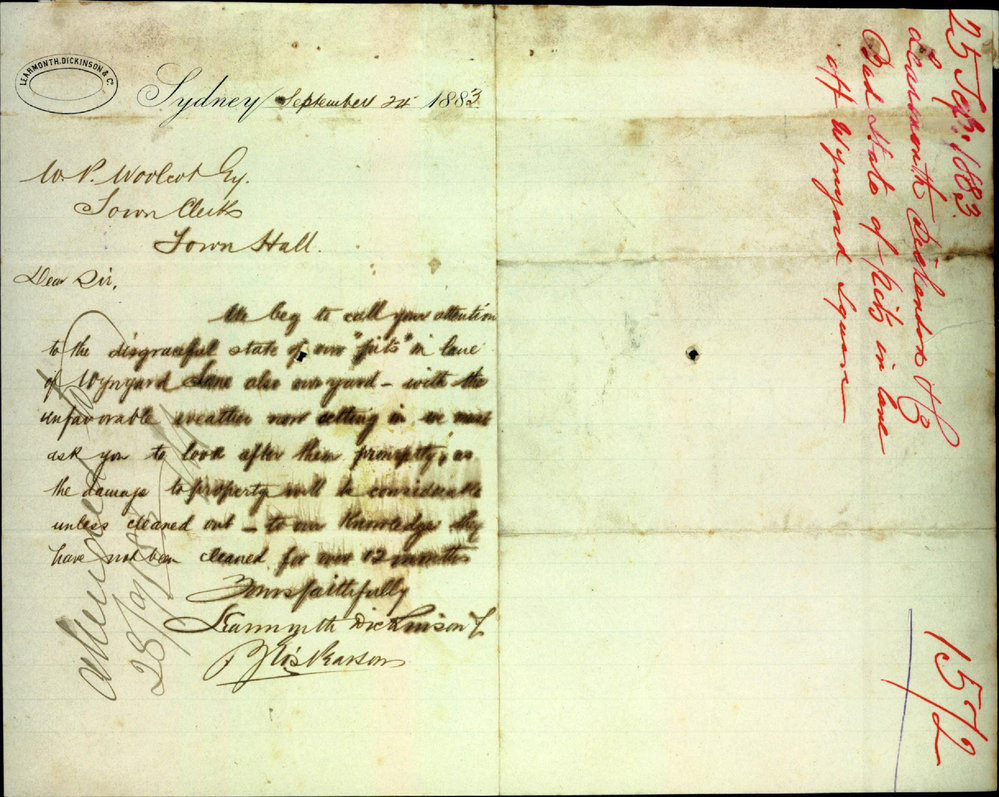 LEARMONTH, DICKINSON & Co
Sydney September 24 1883
W. P. Woolcot Esq.
Town Clerk
Town Hall.
Dear Sir,
We beg to call your attention
to the disgraceful state of our "pits" in lane
of Wynyard Lane also our yard - with the
unfavorable weather now setting in we must
ask you to look after them promptly, as
the damage to property will be considerable
unless cleaned out - to our knowledge they
have not been cleaned for over 12 months
Yours faithfully
Learmonth Dickinson &
Pearson
28/9/83
25 Sep. 1883.
Learmonth Dickinson & Co
Bad State of pits in lane
off Wynyard Square
1572